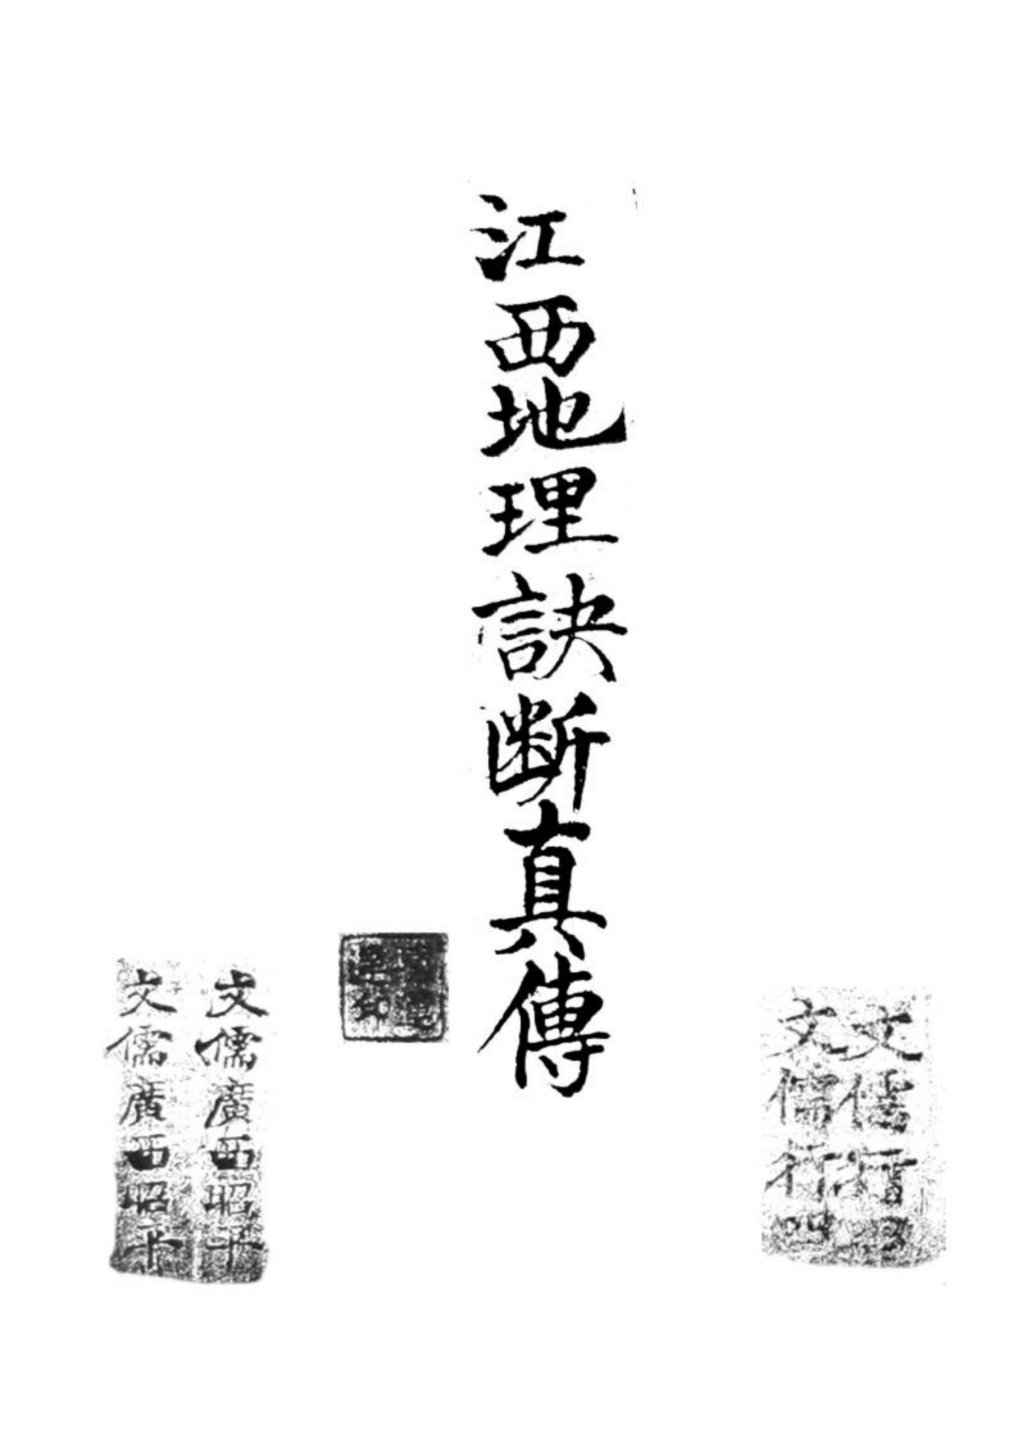 江西地理訣断真傳
文儒行
文儒行四
文儒廣西昭平
文儒廣西昭平